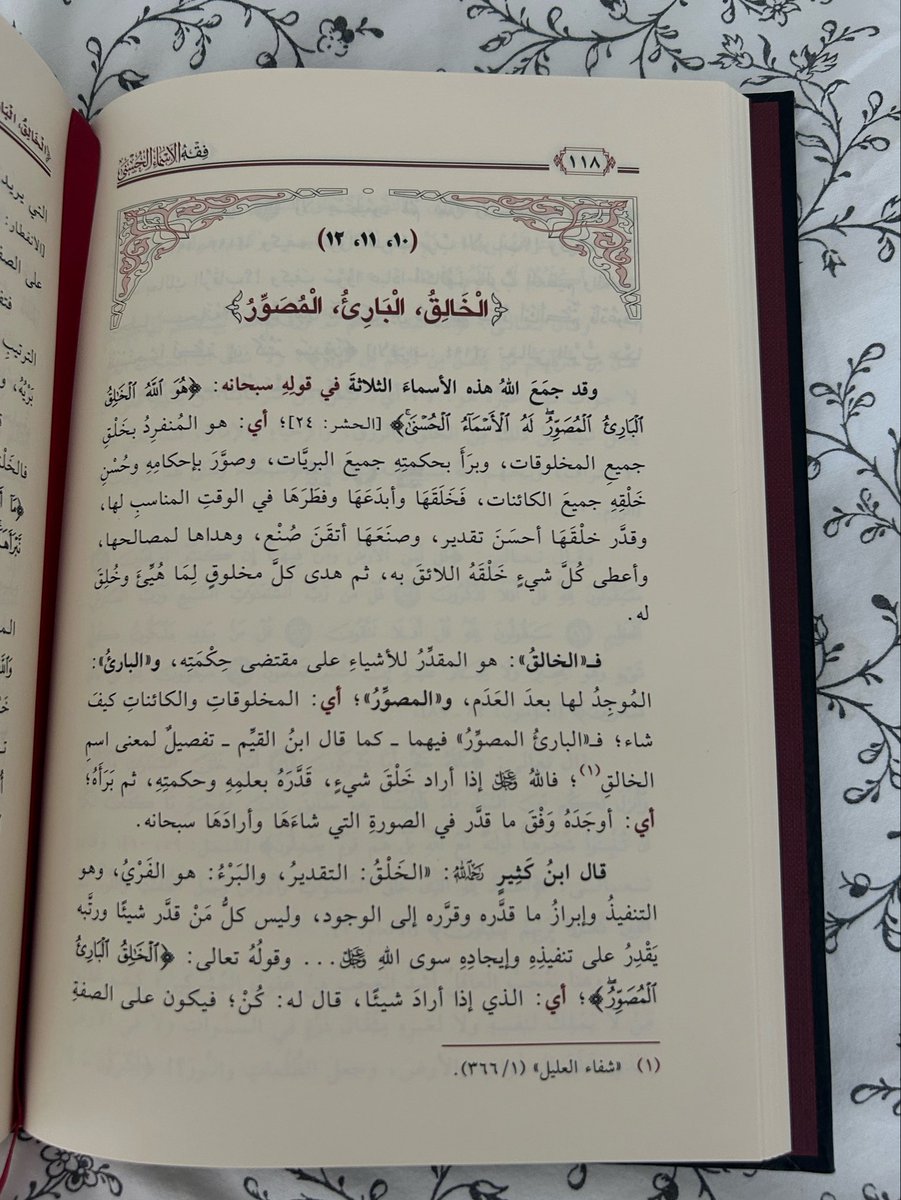 فقه الأسماء الحسنى
١١٨
(١٠، ١١، ١٢)
﴿الْخَالِقُ، الْبَارِئُ، الْمُصَوِّرُ﴾
وقد جمَعَ اللهُ هذه الأسماءَ الثلاثةَ في قولِهِ سبحانه: ﴿هُوَ ٱللَّهُ ٱلۡخَٰلِقُ
ٱلۡبَارِئُ ٱلۡمُصَوِّرُۖ لَهُ ٱلۡأَسۡمَآءُ ٱلۡحُسۡنَىٰۚ﴾ [الحشر: ٢٤]؛ أي: هو المُنفردُ بخَلْقِ
جميعِ المخلوقات، وبرَأَ بحكمتِهِ جميعَ البريَّات، وصوَّرَ بإحكامِهِ وحُسْنِ
خَلْقِهِ جميعَ الكائنات، فَخَلَقَهَا وأبدَعَهَا وفطَرَهَا في الوقتِ المناسبِ لها،
وقدَّر خلْقَهَا أحسَنَ تقدير، وصنَعَهَا أتقَنَ صُنْع، وهداها لمصالحها،
وأعطى كُلَّ شيءٍ خَلْقَهُ اللائقَ به، ثم هدى كلَّ مخلوقٍ لِمَا هُيِّئَ وخُلِقَ
له.
فـ«الخالقُ»: هو المقدِّرُ للأشياءِ على مقتضى حِكْمَتِه، و«البارئُ»:
المُوجِدُ لها بعدَ العَدَم، و«المصوِّرُ»؛ أي: المخلوقاتِ والكائناتِ كيفَ
شاء؛ فـ«البارئُ المصوِّرُ» فيهما ـ كما قال ابنُ القيِّم ـ تفصيلٌ لمعنى اسمِ
الخالقِ(١)؛ فاللهُ ﷻ إذا أراد خَلْقَ شيءٍ، قَدَّرَهُ بعلمِهِ وحكمتِهِ، ثم بَرَأَهُ؛
أي: أوجَدَهُ وَفْقَ ما قدَّر في الصورةِ التي شاءَهَا وأرادَهَا سبحانه.
قال ابنُ كَثِيرٍ رَحِمَهُ اللهُ: «الخَلْقُ: التقديرُ، والبَرْءُ: هو الفَرْيُ، وهو
التنفيذُ وإبرازُ ما قدَّره وقرَّره إلى الوجود، وليس كلُّ مَنْ قدَّر شيئًا ورتَّبه
يَقْدِرُ على تنفيذِهِ وإيجادِهِ سوى اللهِ ﷻ... وقولُهُ تعالى: ﴿ٱلۡخَٰلِقُ ٱلۡبَارِئُ
ٱلۡمُصَوِّرُۖ﴾؛ أي: الذي إذا أرادَ شيئًا، قال له: كُنْ؛ فيكون على الصفةِ
(١) «شفاء العليل» (٣٦٦/١).